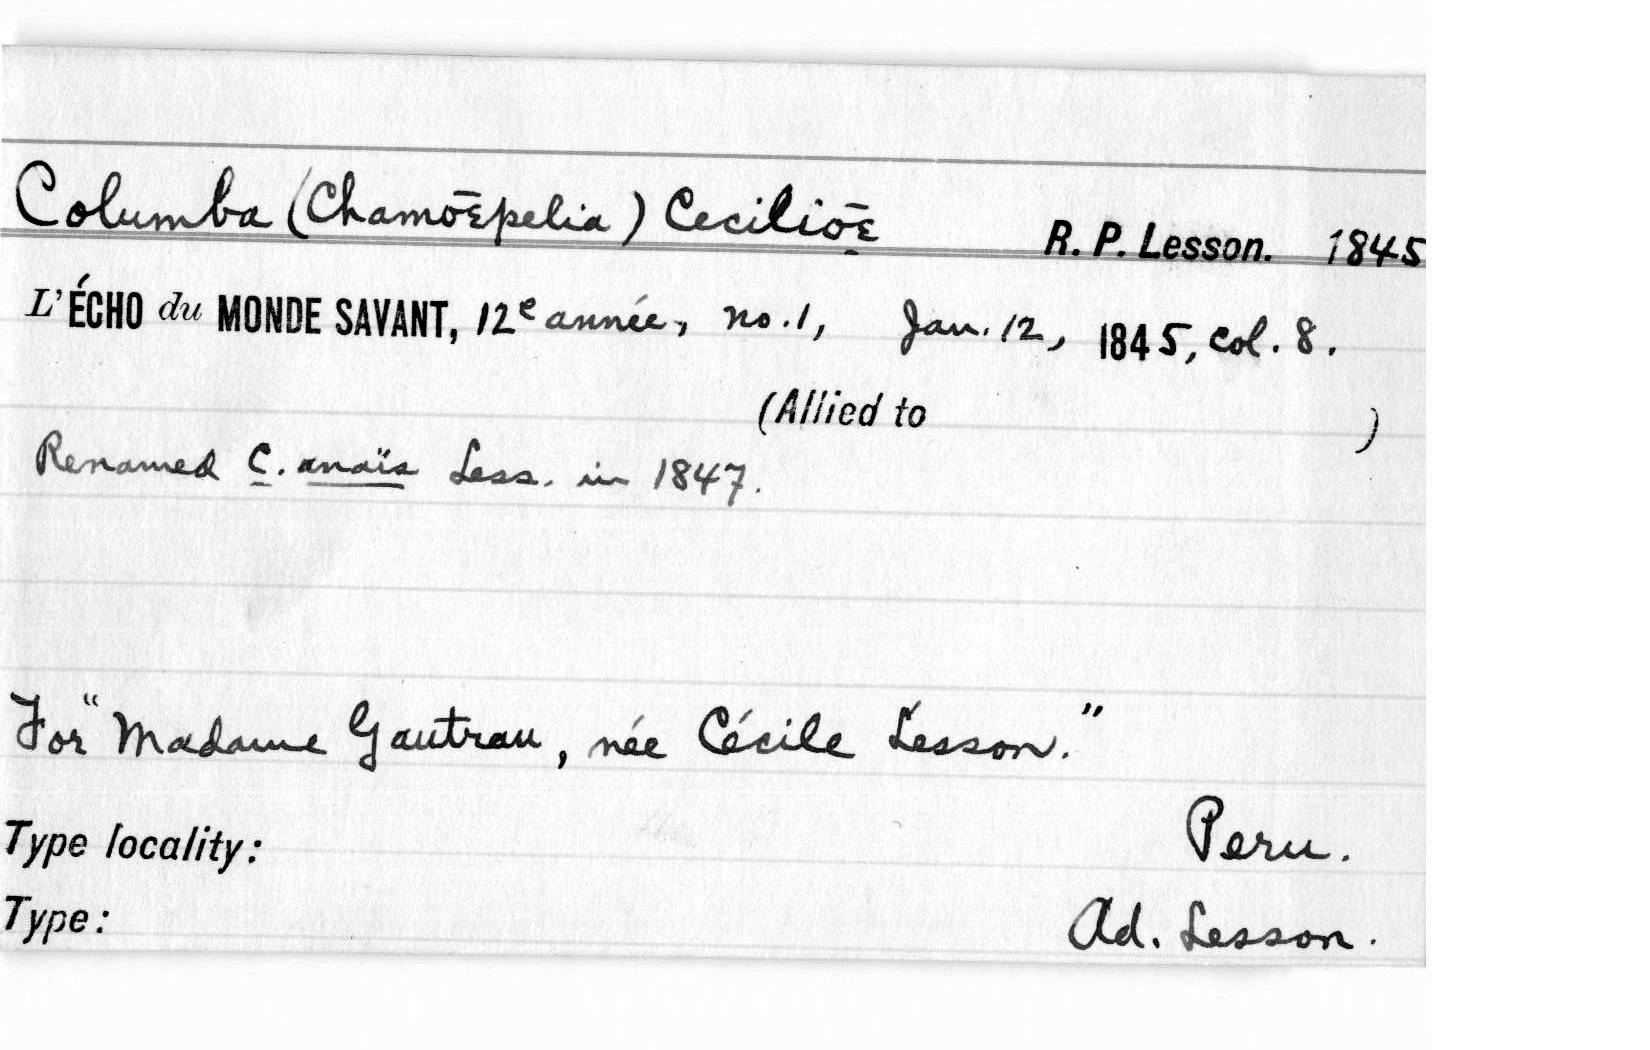 Columba (Chamœpelia) Ceciliœ R. P. Lesson. 1845
L'ÉCHO du MONDE SAVANT, 12e année, no. 1, Jan. 12, 1845, col. 8.
(Allied to )
Renamed C. anaïs Less. in 1847.
For "Madame Gautrau, née Cécile Lesson."
Type locality: Peru.
Type: Ad. Lesson.